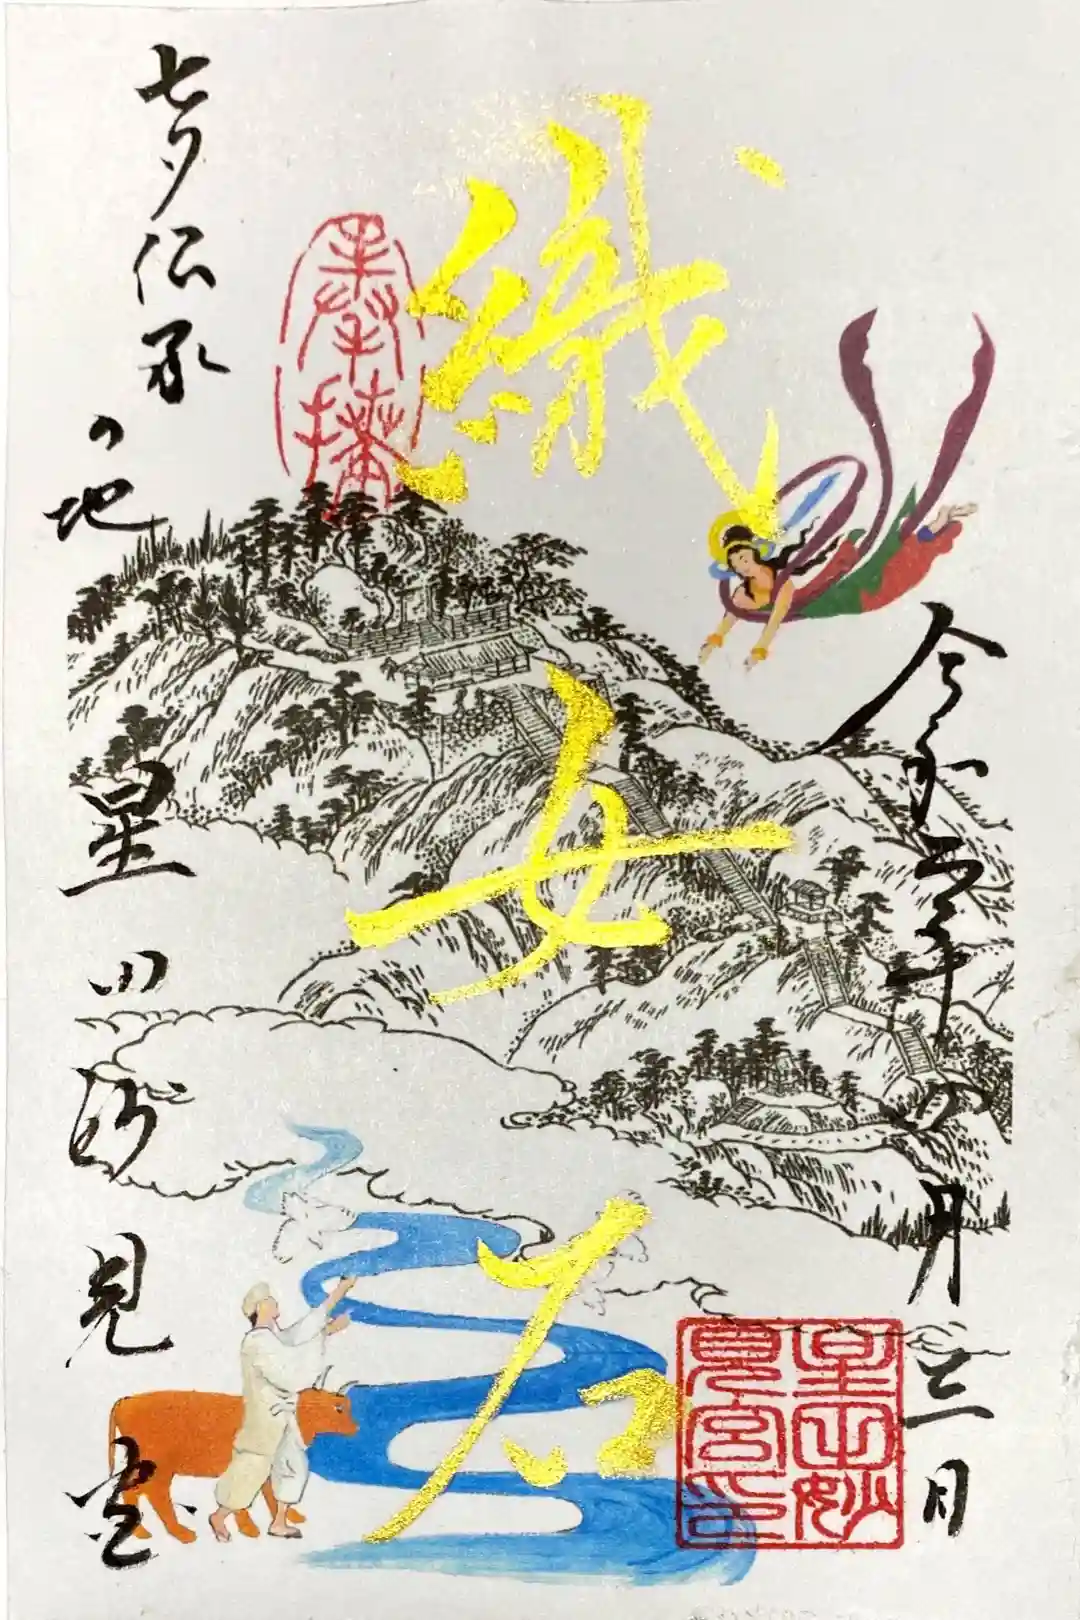 令和年四月三日
織女石
奉拝
七夕伝承の地
星田妙見宮
星田妙
見宮印